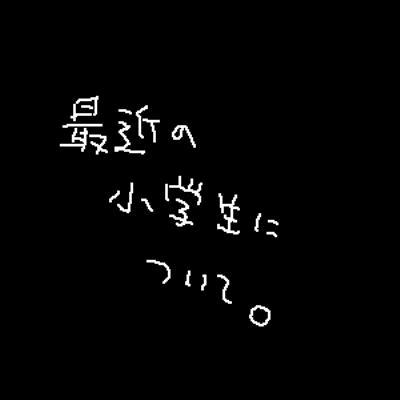 最近の
小学生に
ついて。